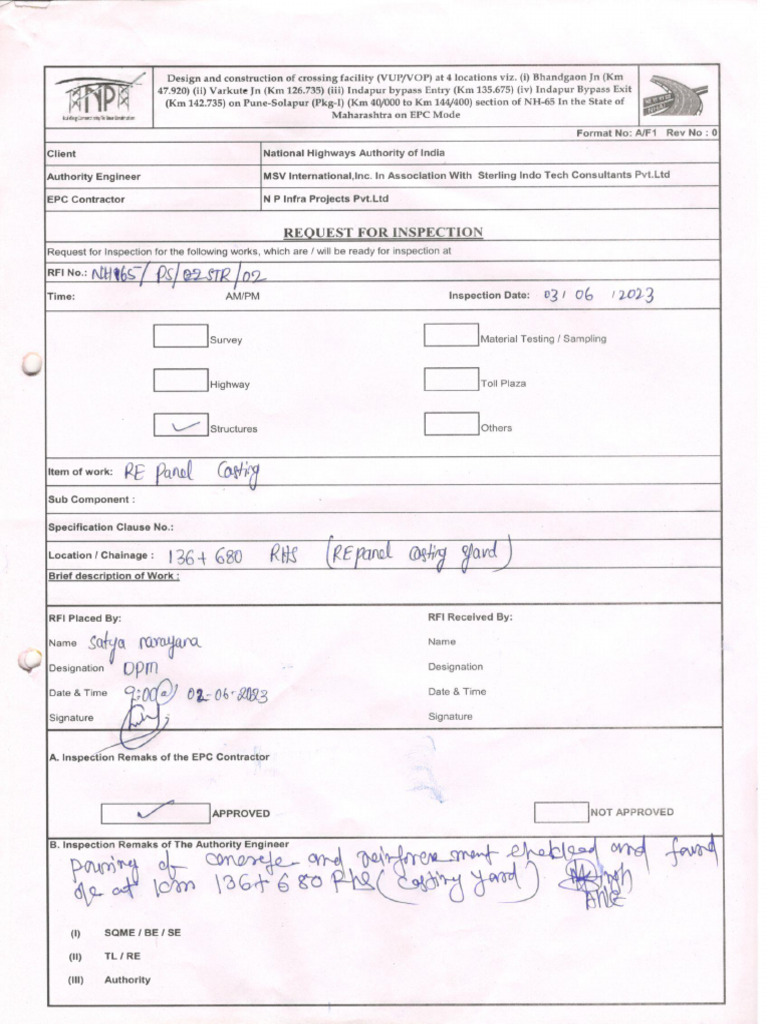 Design and construction of crossing facility (VUP/VOP) at 4 locations viz. (i) Bhandgaon Jn (Km
47.920) (ii) Varkute Jn (Km 126.735) (iii) Indapur bypass Entry (Km 135.675) (iv) Indapur Bypass Exit
(Km 142.735) on Pune-Solapur (Pkg-I) (Km 40/000 to Km 144/400) section of NH-65 In the State of
Maharashtra on EPC Mode
Format No: A/F1 Rev No : 0
Client National Highways Authority of India
Authority Engineer MSV International,Inc. In Association With Sterling Indo Tech Consultants Pvt.Ltd
EPC Contractor N P Infra Projects Pvt.Ltd
REQUEST FOR INSPECTION
Request for Inspection for the following works, which are / will be ready for inspection at
RFI No.: NH65/ PS/02STR/02
Time: AM/PM Inspection Date: 03/ 06 /2023
Survey Material Testing / Sampling
Highway Toll Plaza
Structures Others
Item of work: RE Panel Casting
Sub Component :
Specification Clause No.:
Location / Chainage : 136+680 RHS (RE panel casting yard)
Brief description of Work :
RFI Placed By: RFI Received By:
Name Satya narayana Name
Designation DPM Designation
Date & Time 9:00 02-06-2023 Date & Time
Signature Signature
A. Inspection Remaks of the EPC Contractor
APPROVED NOT APPROVED
B. Inspection Remaks of The Authority Engineer
pouring of concrete and reinforcement checked and found
ok at km 136+680 RHS (casting yard)
(I) SQME / BE / SE
(II) TL / RE
(III) Authority